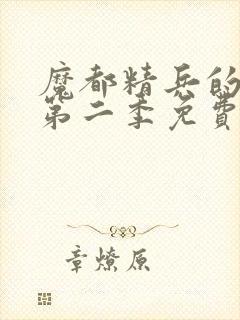 魔都精兵的
第二季免費
章燎原